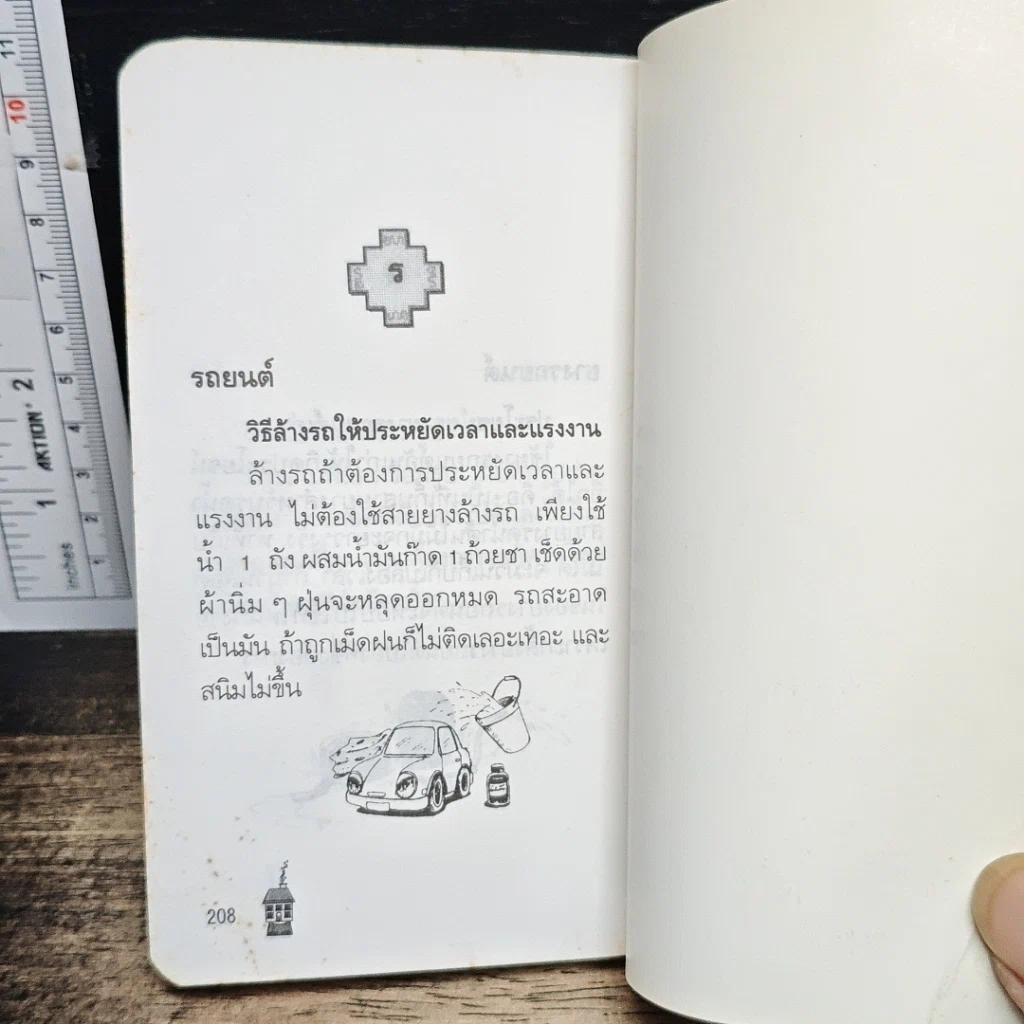 ร
รถยนต์
วิธีล้างรถให้ประหยัดเวลาและแรงงาน
ล้างรถถ้าต้องการประหยัดเวลาและ
แรงงาน ไม่ต้องใช้สายยางล้างรถ เพียงใช้
น้ำ 1 ถัง ผสมน้ำมันก๊าด 1 ถ้วยชา เช็ดด้วย
ผ้านิ่ม ๆ ฝุ่นจะหลุดออกหมด รถสะอาด
เป็นมัน ถ้าถูกเม็ดฝนก็ไม่ติดเลอะเทอะ และ
สนิมไม่ขึ้น
208
11
10
9
8
7
6
5
4
3
2
1
AKTION
2
1
Inches